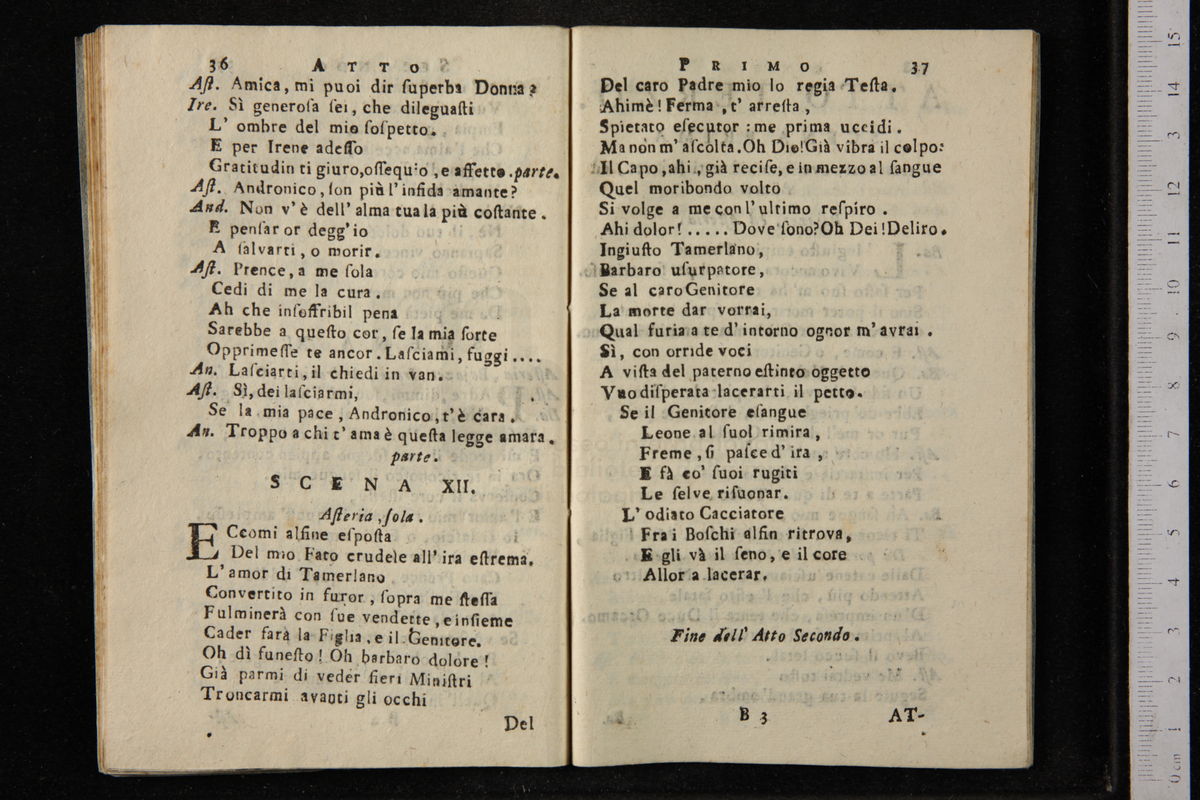 36 ATTO
Aſt. Amica, mi puoi dir ſuperba Donna?
Ire. Sì generoſa ſei, che dileguaſti
L' ombre del mio ſoſpetto.
E per Irene adeſſo
Gratitudin ti giuro, oſſequio, e affetto. parte.
Aſt. Andronico, ſon più l' infida amante?
And. Non v' è dell' alma tua la più coſtante.
E penſar or degg' io
A ſalvarti, o morir.
Aſt. Prence, a me ſola
Cedi di me la cura.
Ah che inſoffribil pena
Sarebbe a queſto cor, ſe la mia ſorte
Opprimeſſe te ancor. Laſciami, fuggi....
An. Laſciarti, il chiedi in van.
Aſt. Sì, dei laſciarmi,
Se la mia pace, Andronico, t' è cara.
An. Troppo a chi t' ama è queſta legge amara.
parte.
SCENA XII.
Aſteria, ſola.
ECcomi alfine eſpoſta
Del mio Fato crudele all' ira eſtrema.
L' amor di Tamerlano
Convertito in furor, ſopra me ſteſſa
Fulminerà con ſue vendette, e inſieme
Cader farà la Figlia, e il Genitore.
Oh dì funeſto! Oh barbaro dolore!
Già parmi di veder fieri Miniſtri
Troncarmi avanti gli occhi
Del
PRIMO 37
Del caro Padre mio lo regia Teſta.
Ahimè! Ferma, t' arreſta,
Spietato eſecutor: me prima uccidi.
Ma non m' aſcolta. Oh Dio! Già vibra il colpo:
Il Capo, ahi, già reciſe, e in mezzo al ſangue
Quel moribondo volto
Si volge a me con l' ultimo reſpiro.
Ahi dolor!..... Dove ſono? Oh Dei! Deliro.
Ingiuſto Tamerlano,
Barbaro uſurpatore,
Se al caro Genitore
La morte dar vorrai,
Qual furia a te d' intorno ognor m' avrai.
Sì, con orride voci
A viſta del paterno eſtinto oggetto
Vuo diſperata lacerarti il petto.
Se il Genitore eſangue
Leone al ſuol rimira,
Freme, ſi paſce d' ira,
E fà co' ſuoi rugiti
Le ſelve riſuonar.
L' odiato Cacciatore
Fra i Boſchi alfin ritrova,
E gli và il ſeno, e il core
Allor a lacerar.
Fine dell' Atto Secondo.
B 3 AT-
0 cm 1 2 3 4 5 6 7 8 9 10 11 12 13 14 15